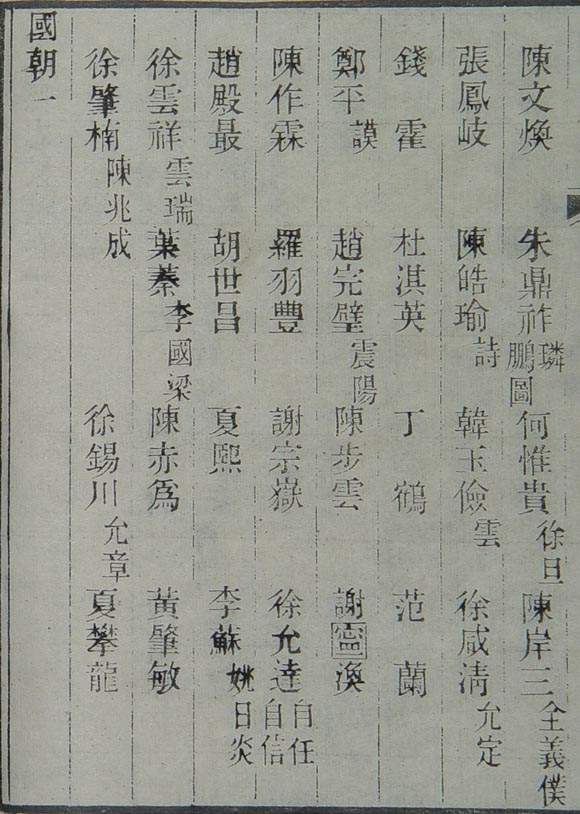 陳文煥 朱鼎祚 璘 鵬圖 何惟貴 徐旦 陳岸三 全義僕
張鳳岐 陳皓瑜 詩 韓玉儉 雲 徐咸清 允定
錢霍 杜淇英 丁鶴 范蘭
鄭平 謨 趙完璧 震陽 陳步雲 謝寍渙
陳作霖 羅羽豐 謝宗嶽 徐允達 自任 自信
趙殿最 胡世昌 夏熙 李蘇 姚日炎
徐雲祥 雲瑞 葉蓁 李國梁 陳赤為 黃肇敏
徐肇楠 陳兆成 徐錫川 允章 夏攀龍
國朝一